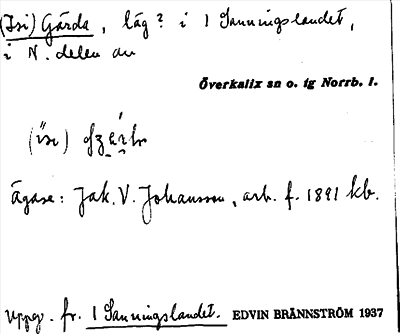 (Isi) Gärda, läg? i 1 Sanningslandet,
i N. delen av
Överkalix sn o. tg Norrb. l.
Ägare: Jak. V. Johansson, arb. f. 1891 kb.
Uppg. fr. 1 Sanningslandet. EDVIN BRÄNNSTRÖM 1937